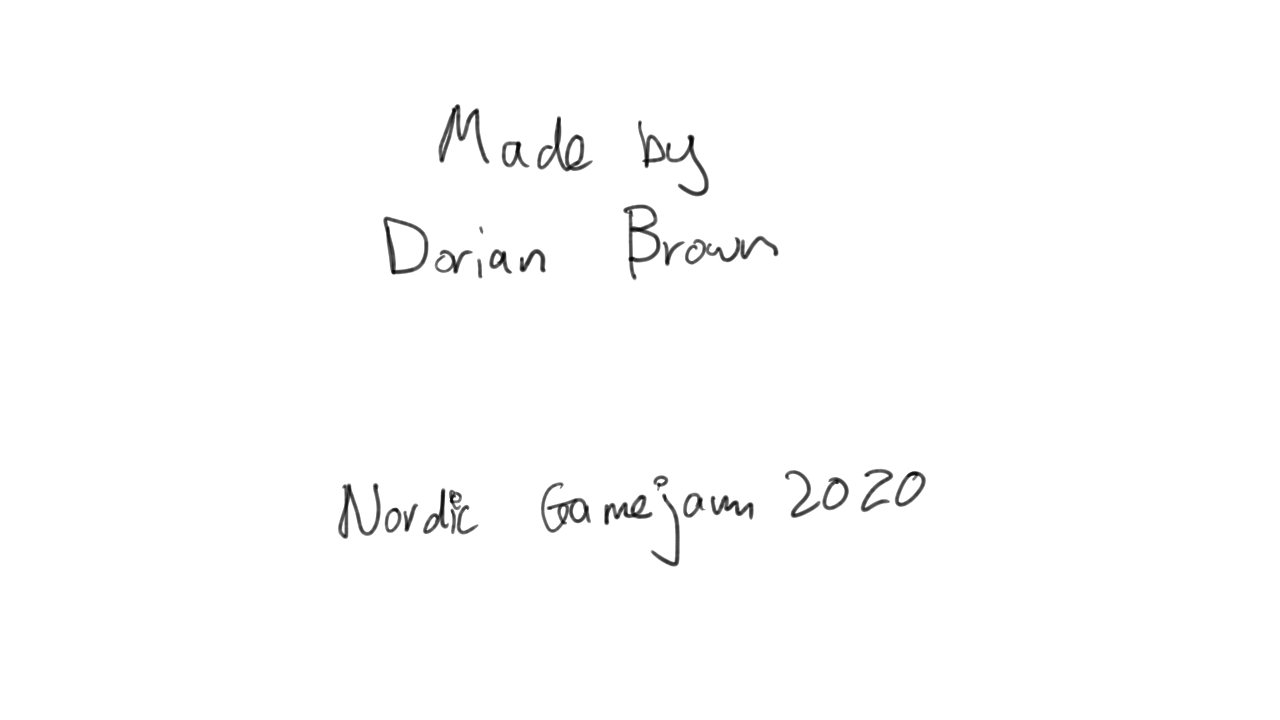 Made by
Dorian Brown
Nordic Gamejam 2020